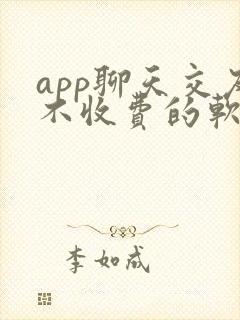 app聊天交友
不收费的软
李如成